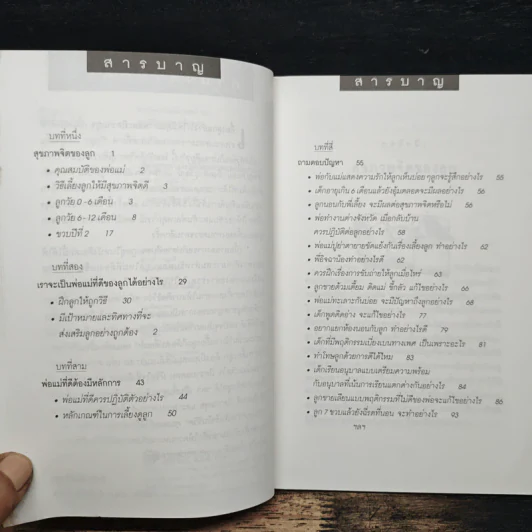 สารบาญ
บทที่หนึ่ง
สุขภาพจิตของลูก 1
• คุณสมบัติของพ่อแม่ 2
• วิธีเลี้ยงลูกให้มีสุขภาพจิตดี 3
• ลูกวัย 0 -6 เดือน 3
• ลูกวัย 6-12 เดือน 8
• ขวบปีที่ 2 17
บทที่สอง
เราจะเป็นพ่อแม่ที่ดีของลูกได้อย่างไร 29
• ฝึกลูกให้ถูกวิธี 30
• มีเป้าหมายและทิศทางที่จะ
ส่งเสริมลูกอย่างถูกต้อง 2
บทที่สาม
พ่อแม่ที่ดีต้องมีหลักการ 43
• พ่อแม่ที่ดีควรปฏิบัติตัวอย่างไร 44
• หลักเกณฑ์ในการเลี้ยงดูลูก 50
สารบาญ
บทที่สี่
ถามตอบปัญหา 55
• พ่อกับแม่แสดงความรักให้ลูกเห็นบ่อย ๆลูกจะรู้สึกอย่างไร 55
• เด็กอายุเกิน 6 เดือนแล้วยังอุ้มตลอดจะมีผลอย่างไร 56
• ลูกนอนกับพี่เลี้ยง จะมีผลต่อสุขภาพจิตหรือไม่ 56
• พ่อทำงานต่างจังหวัด เมื่อกลับบ้าน
ควรปฏิบัติต่อลูกอย่างไร 58
• พ่อแม่ปู่ย่าตายายขัดแย้งกันเรื่องเลี้ยงลูก ทำอย่างไร 62
• พี่อิจฉาน้องทำอย่างไรดี 62
• ควรฝึกเรื่องการขับถ่ายให้ลูกเมื่อไหร่ 63
• ลูกชายต้วมเตี้ยม ติดแม่ ขี้กลัว แก้ไขอย่างไร 66
• พ่อแม่ทะเลาะกันบ่อย จะมีปัญหาถึงลูกอย่างไร 68
• เด็กพูดติดอ่าง จะแก้ไขอย่างไร 77
• อยากแยกห้องนอนกับลูก ทำอย่างไรดี 79
• เด็กที่มีพฤติกรรมเบี่ยงเบนทางเพศ เป็นเพราะอะไร 81
• ทำโทษลูกด้วยการตีได้ไหม 83
• เด็กเรียนอนุบาลแบบเตรียมความพร้อม
กับอนุบาลที่เน้นการเรียนแตกต่างกันอย่างไร 84
• ลูกชายเลียนแบบพฤติกรรมที่ไม่ดีของพ่อจะแก้ไขอย่างไร 86
• ลูก 7 ขวบแล้วยังฉี่รดที่นอน จะทำอย่างไร 93
ฯลฯ